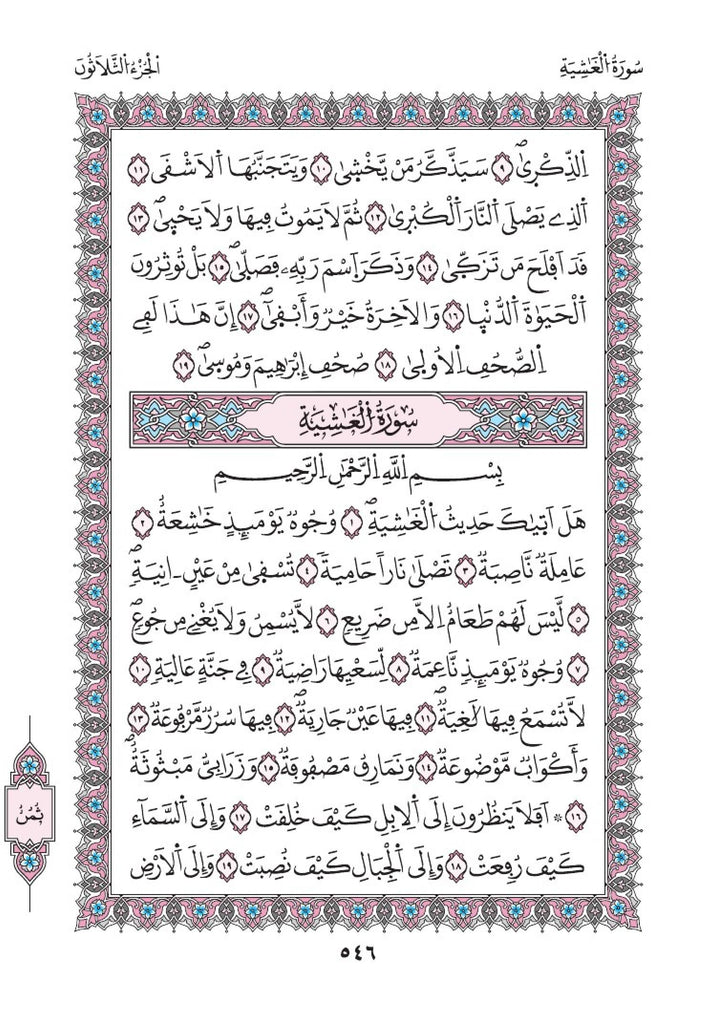 سُورَةُ الْغَٰشِيَةِ
اَلْجُزْءُ الثَّلَاثُونَ
اِ۬لذِّكْر۪ىٰۖ ٩ سَيَذَّكَّرُ مَنْ يَّخْش۪ىٰ ١٠ وَيَتَجَنَّبُهَا اَ۬لَاشْقَى ١١
اَ۬لذِے يَصْلَى اَ۬لنَّارَ اَ۬لْكُبْر۪ىٰ ١٢ ثُمَّ لَا يَمُوتُ فِيهَا وَلَا يَحْي۪ىٰۖ ١٣
قَدَ اَفْلَحَ مَن تَزَكّ۪ىٰ ١٤ وَذَكَرَ اَ۪سْمَ رَبِّهِۦ فَصَلّ۪ىٰۖ ١٥ بَلْ تُوثِرُونَ
اَ۬لْحَيَوٰةَ اَ۬لدُّنْي۪ا ١٦ وَالَاخِرَةُ خَيْرٌ وَأَبْق۪ىٰۖ ١٧ إِنَّ هَٰذَا لَفِے
اِ۬لصُّحُفِ اِ۬لُاول۪ىٰ ١٨ صُحُفِ إِبْرَٰهِيمَ وَمُوس۪ىٰۖ ١٩
سُورَةُ الْغَٰشِيَةِ
بِسْمِ اِ۬للَّهِ اِ۬لرَّحْمَٰنِ اِ۬لرَّحِيمِ
هَلَ اَت۪يٰكَ حَدِيثُ اُ۬لْغَٰشِيَةِۖ ١ وُجُوهٌ يَوْمَئِذٍ خَٰشِعَةٌ ٢
عَامِلَةٌ نَّاصِبَةٌ ٣ تَصْلَىٰ نَاراً حَامِيَةٗ ٤ تُسْق۪ىٰ مِنْ عَيْنٍ ـ اٰنِيَةٖۖ
٥ لَّيْسَ لَهُمْ طَعَامٌ اِلَّا مِن ضَرِيعٖ ٦ لَّا يُسْمِنُ وَلَا يُغْنِے مِن جُوعٖۖ
٧ وُجُوهٌ يَوْمَئِذٍ نَّاعِمَةٌ ٨ لِّسَعْيِهَا رَاضِيَةٌ ٩ فِے جَنَّةٍ عَالِيَةٖ ١٠
لَّا تُسْمَعُ فِيهَا لَٰغِيَةٌۖ ١١ فِيهَا عَيْنٌ جَارِيَةٌۖ ١٢ فِيهَا سُرُرٌ مَّرْفُوعَةٌ ١٣
وَأَكْوَابٌ مَّوْضُوعَةٌ ١٤ وَنَمَارِقُ مَصْفُوفَةٌ ١٥ وَزَرَابِيُّ مَبْثُوثَةٌۖ
١٦ ۞ اَفَلَا يَنظُرُونَ إِلَى اَ۬لِابِلِ كَيْفَ خُلِقَتْ ١٧ وَإِلَى اَ۬لسَّمَآءِ
كَيْفَ رُفِعَتْ ١٨ وَإِلَى اَ۬لْجِبَالِ كَيْفَ نُصِبَتْ ١٩ وَإِلَى اَ۬لَارْضِ
ثُمُنُ
٥٤٦